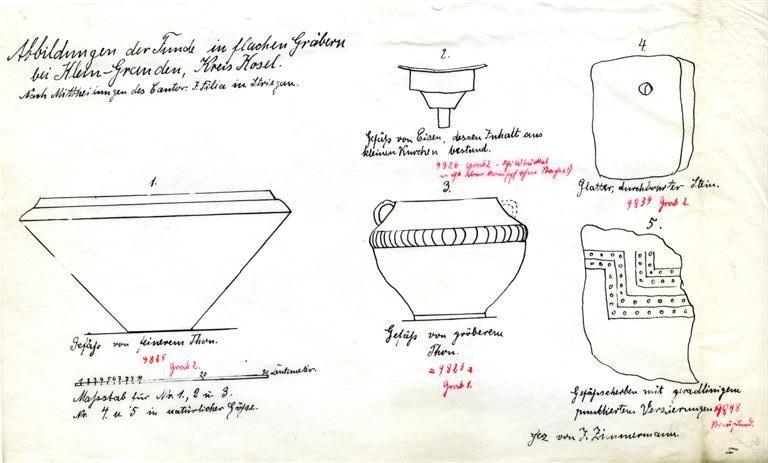 Abbildungen der Funde in flachen Gräbern
bei Klein-Grauden, Kreis Kosel.
Nach Mittheilungen des Cantor: J. Filla in Striegau.
1.
Gefäß von feinerem Thon.
9825
Grab 2.
20
30 Centimeter.
Maßstab für Nr. 1, 2 u 3.
Nr. 4 u 5 in natürlicher Größe.
2.
Gefäß von Eisen, dessen Inhalt aus
kleinen Knochen bestand.
9826 Grab 2.
3.
Gefäß von gröberem
Thon.
9823
Grab 1.
4
Glatter, durchbohrter Stein.
9839 Grab 2
5.
Gefäßscherben mit geradlinigen
punktierten Verzierungen 9848
gez von J. Zimmermann.